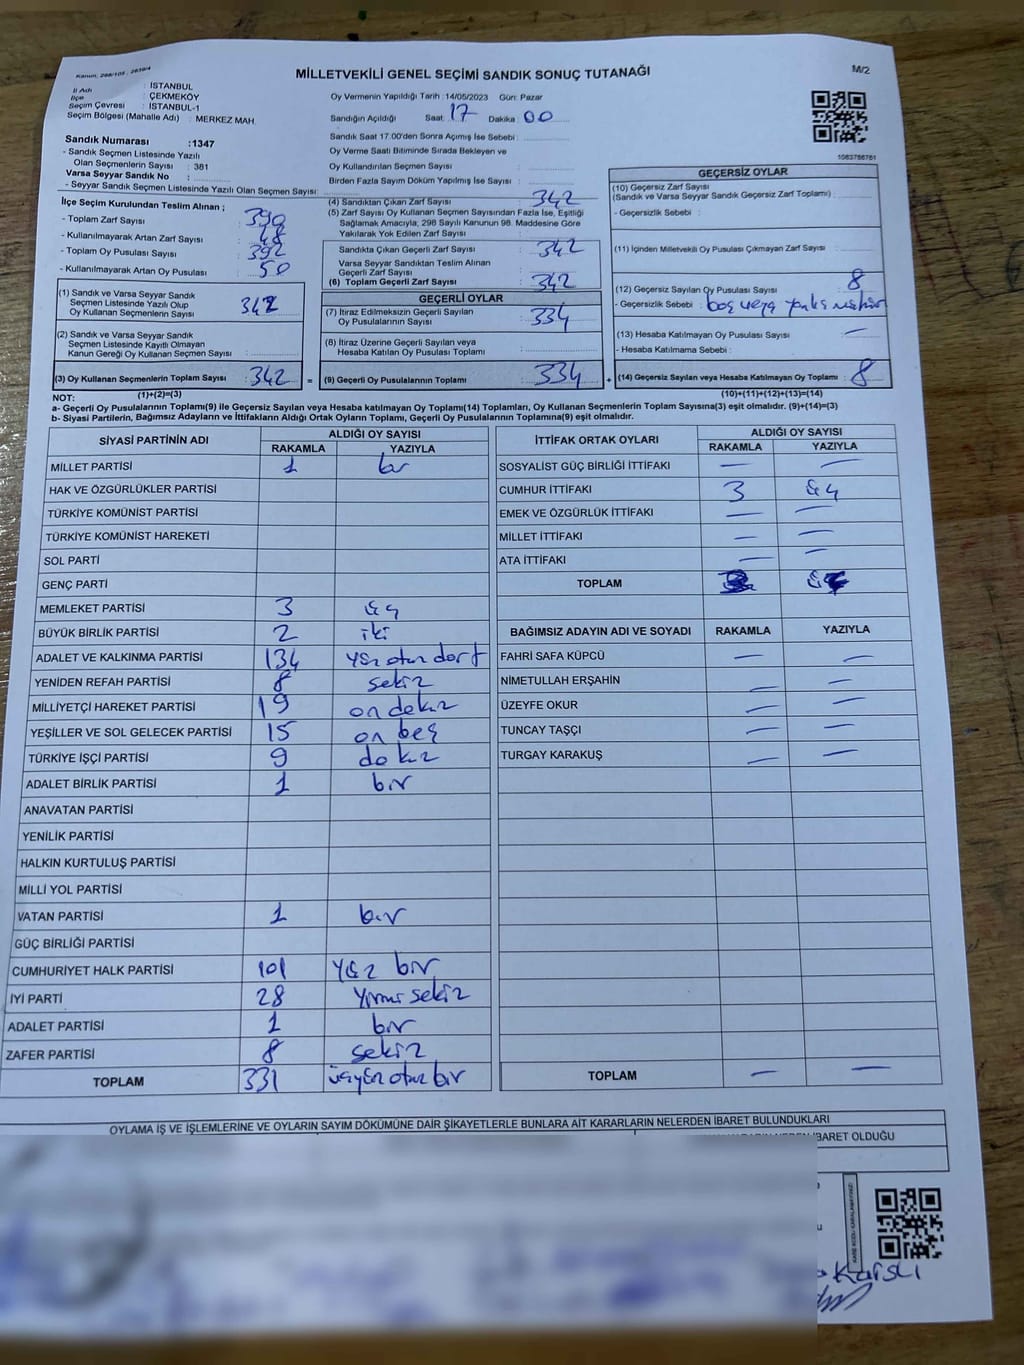 Kanun: 298/105 ; 2839/4
MİLLETVEKİLİ GENEL SEÇİMİ SANDIK SONUÇ TUTANAĞI
M/2
İl Adı : İSTANBUL
İlçe : ÇEKMEKÖY
Seçim Çevresi : İSTANBUL-1
Seçim Bölgesi (Mahalle Adı) : MERKEZ MAH.
Sandık Numarası :1347
- Sandık Seçmen Listesinde Yazılı
Olan Seçmenlerin Sayısı : 381
Varsa Seyyar Sandık No :
- Seyyar Sandık Seçmen Listesinde Yazılı Olan Seçmen Sayısı:
Oy Vermenin Yapıldığı Tarih :14/05/2023 Gün: Pazar
Sandığın Açıldığı Saat: 17 Dakika 00
Sandık Saat 17.00'den Sonra Açımış İse Sebebi :
Oy Verme Saati Bitiminde Sırada Bekleyen ve
Oy Kullandırılan Seçmen Sayısı :
Birden Fazla Sayım Döküm Yapılmış İse Sayısı :
1063766761
İlçe Seçim Kurulundan Teslim Alınan ;
- Toplam Zarf Sayısı : 390
- Kullanılmayarak Artan Zarf Sayısı : 48
- Toplam Oy Pusulası Sayısı : 392
- Kullanılmayarak Artan Oy Pusulası : 50
(1) Sandık ve Varsa Seyyar Sandık
Seçmen Listesinde Yazılı Olup
Oy Kullanan Seçmenlerin Sayısı : 342
(2) Sandık ve Varsa Seyyar Sandık
Seçmen Listesinde Kayıtlı Olmayan
Kanun Gereği Oy Kullanan Seçmen Sayısı :
(3) Oy Kullanan Seçmenlerin Toplam Sayısı : 342
(1)+(2)=(3)
(4) Sandıktan Çıkan Zarf Sayısı : 342
(5) Zarf Sayısı Oy Kullanan Seçmen Sayısından Fazla İse, Eşitliği
Sağlamak Amacıyla; 298 Sayılı Kanunun 98. Maddesine Göre
Yakılarak Yok Edilen Zarf Sayısı :
Sandıkta Çıkan Geçerli Zarf Sayısı : 342
Varsa Seyyar Sandıktan Teslim Alınan
Geçerli Zarf Sayısı :
(6) Toplam Geçerli Zarf Sayısı : 342
GEÇERLİ OYLAR
(7) İtiraz Edilmeksizin Geçerli Sayılan
Oy Pusulalarının Sayısı : 334
(8) İtiraz Üzerine Geçerli Sayılan veya
Hesaba Katılan Oy Pusulası Toplamı :
= (9) Geçerli Oy Pusulalarının Toplamı : 334 +
GEÇERSİZ OYLAR
(10) Geçersiz Zarf Sayısı
(Sandık ve Varsa Seyyar Sandık Geçersiz Zarf Toplamı) :
- Geçersizlik Sebebi :
(11) İçinden Milletvekili Oy Pusulası Çıkmayan Zarf Sayısı :
(12) Geçersiz Sayılan Oy Pusulası Sayısı : 8
- Geçersizlik Sebebi : boş veya
(13) Hesaba Katılmayan Oy Pusulası Sayısı : —
- Hesaba Katılmama Sebebi :
(14) Geçersiz Sayılan veya Hesaba Katılmayan Oy Toplamı : 8
(10)+(11)+(12)+(13)=(14)
NOT:
a- Geçerli Oy Pusulalarının Toplamı(9) ile Geçersiz Sayılan veya Hesaba katılmayan Oy Toplamı(14) Toplamları, Oy Kullanan Seçmenlerin Toplam Sayısına(3) eşit olmalıdır. (9)+(14)=(3)
b- Siyasi Partilerin, Bağımsız Adayların ve İttifakların Aldığı Ortak Oyların Toplamı, Geçerli Oy Pusulalarının Toplamına(9) eşit olmalıdır.
SİYASİ PARTİNİN ADI ALDIĞI OY SAYISI
RAKAMLA YAZIYLA
MİLLET PARTİSİ 1 bir
HAK VE ÖZGÜRLÜKLER PARTİSİ
TÜRKİYE KOMÜNİST PARTİSİ
TÜRKİYE KOMÜNİST HAREKETİ
SOL PARTİ
GENÇ PARTİ
MEMLEKET PARTİSİ 3 üç
BÜYÜK BİRLİK PARTİSİ 2 iki
ADALET VE KALKINMA PARTİSİ 134 yüz otuz dört
YENİDEN REFAH PARTİSİ 8 sekiz
MİLLİYETÇİ HAREKET PARTİSİ 19 on dokuz
YEŞİLLER VE SOL GELECEK PARTİSİ 15 on beş
TÜRKİYE İŞÇİ PARTİSİ 9 dokuz
ADALET BİRLİK PARTİSİ 1 bir
ANAVATAN PARTİSİ
YENİLİK PARTİSİ
HALKIN KURTULUŞ PARTİSİ
MİLLİ YOL PARTİSİ
VATAN PARTİSİ 1 bir
GÜÇ BİRLİĞİ PARTİSİ
CUMHURİYET HALK PARTİSİ 101 yüz bir
İYİ PARTİ 28 yirmi sekiz
ADALET PARTİSİ 1 bir
ZAFER PARTİSİ 8 sekiz
TOPLAM 331 üçyüz otuz bir
İTTİFAK ORTAK OYLARI ALDIĞI OY SAYISI
RAKAMLA YAZIYLA
SOSYALİST GÜÇ BİRLİĞİ İTTİFAKI — —
CUMHUR İTTİFAKI 3 üç
EMEK VE ÖZGÜRLÜK İTTİFAKI — —
MİLLET İTTİFAKI — —
ATA İTTİFAKI — —
TOPLAM 3 üç
BAĞIMSIZ ADAYIN ADI VE SOYADI RAKAMLA YAZIYLA
FAHRİ SAFA KÜPCÜ — —
NİMETULLAH ERŞAHİN — —
ÜZEYFE OKUR — —
TUNCAY TAŞÇI — —
TURGAY KARAKUŞ — —
TOPLAM — —
OYLAMA İŞ VE İŞLEMLERİNE VE OYLARIN SAYIM DÖKÜMÜNE DAİR ŞİKAYETLERLE BUNLARA AİT KARARLARIN NELERDEN İBARET BULUNDUKLARI
İBARET OLDUĞU